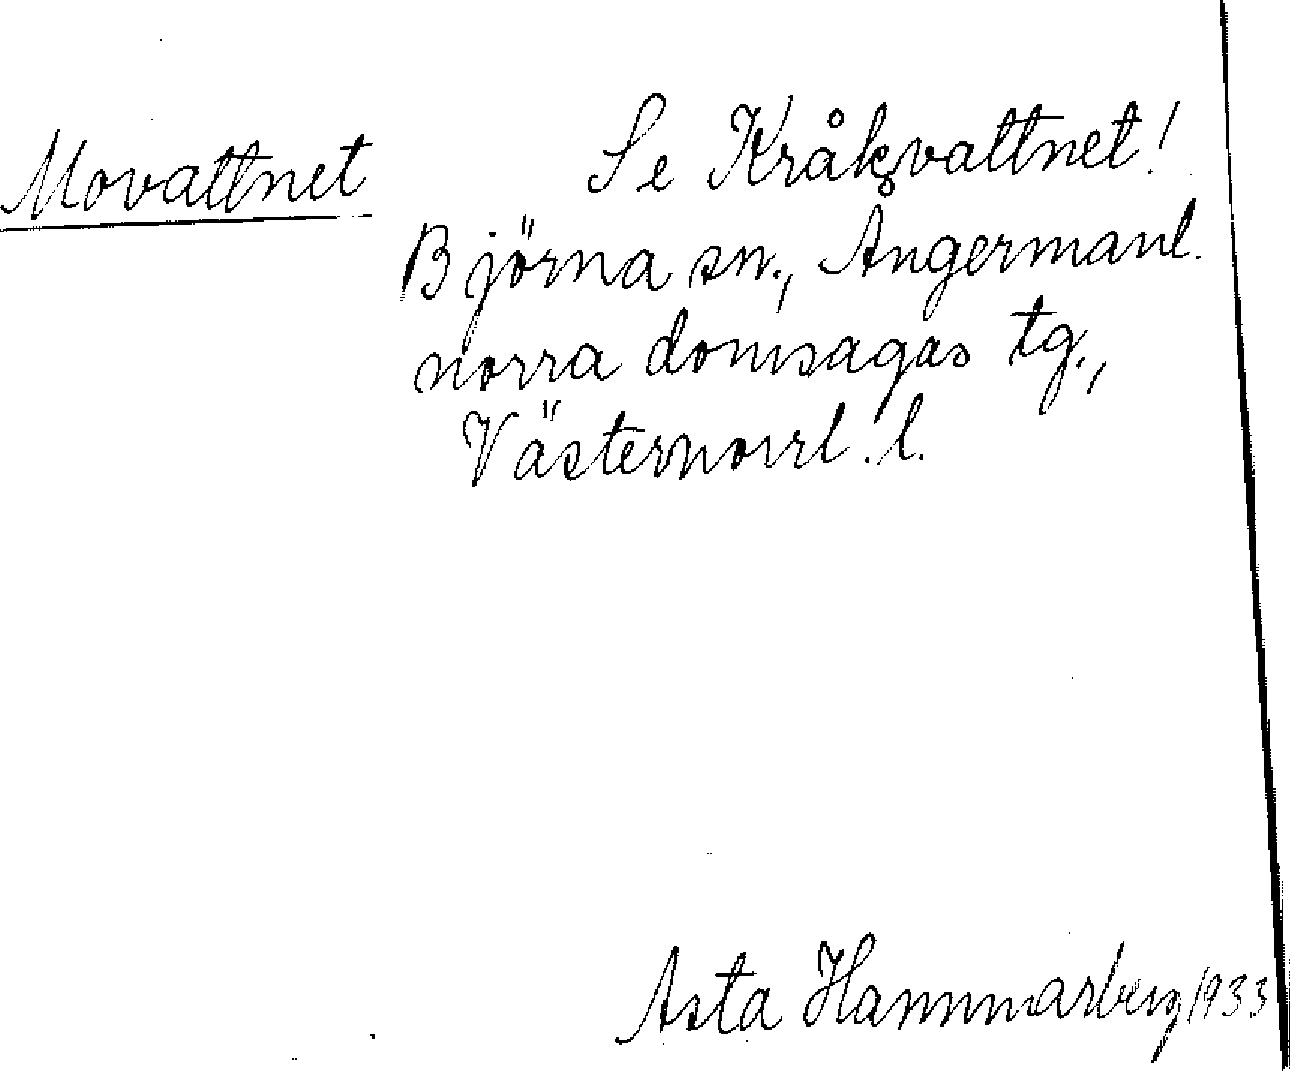 Movattnet
Se Kråkvattnet!
Björna sn., Ångermanl.
norra domsagas tg.,
Västernorrl. l.
Asta Hammarberg 1933